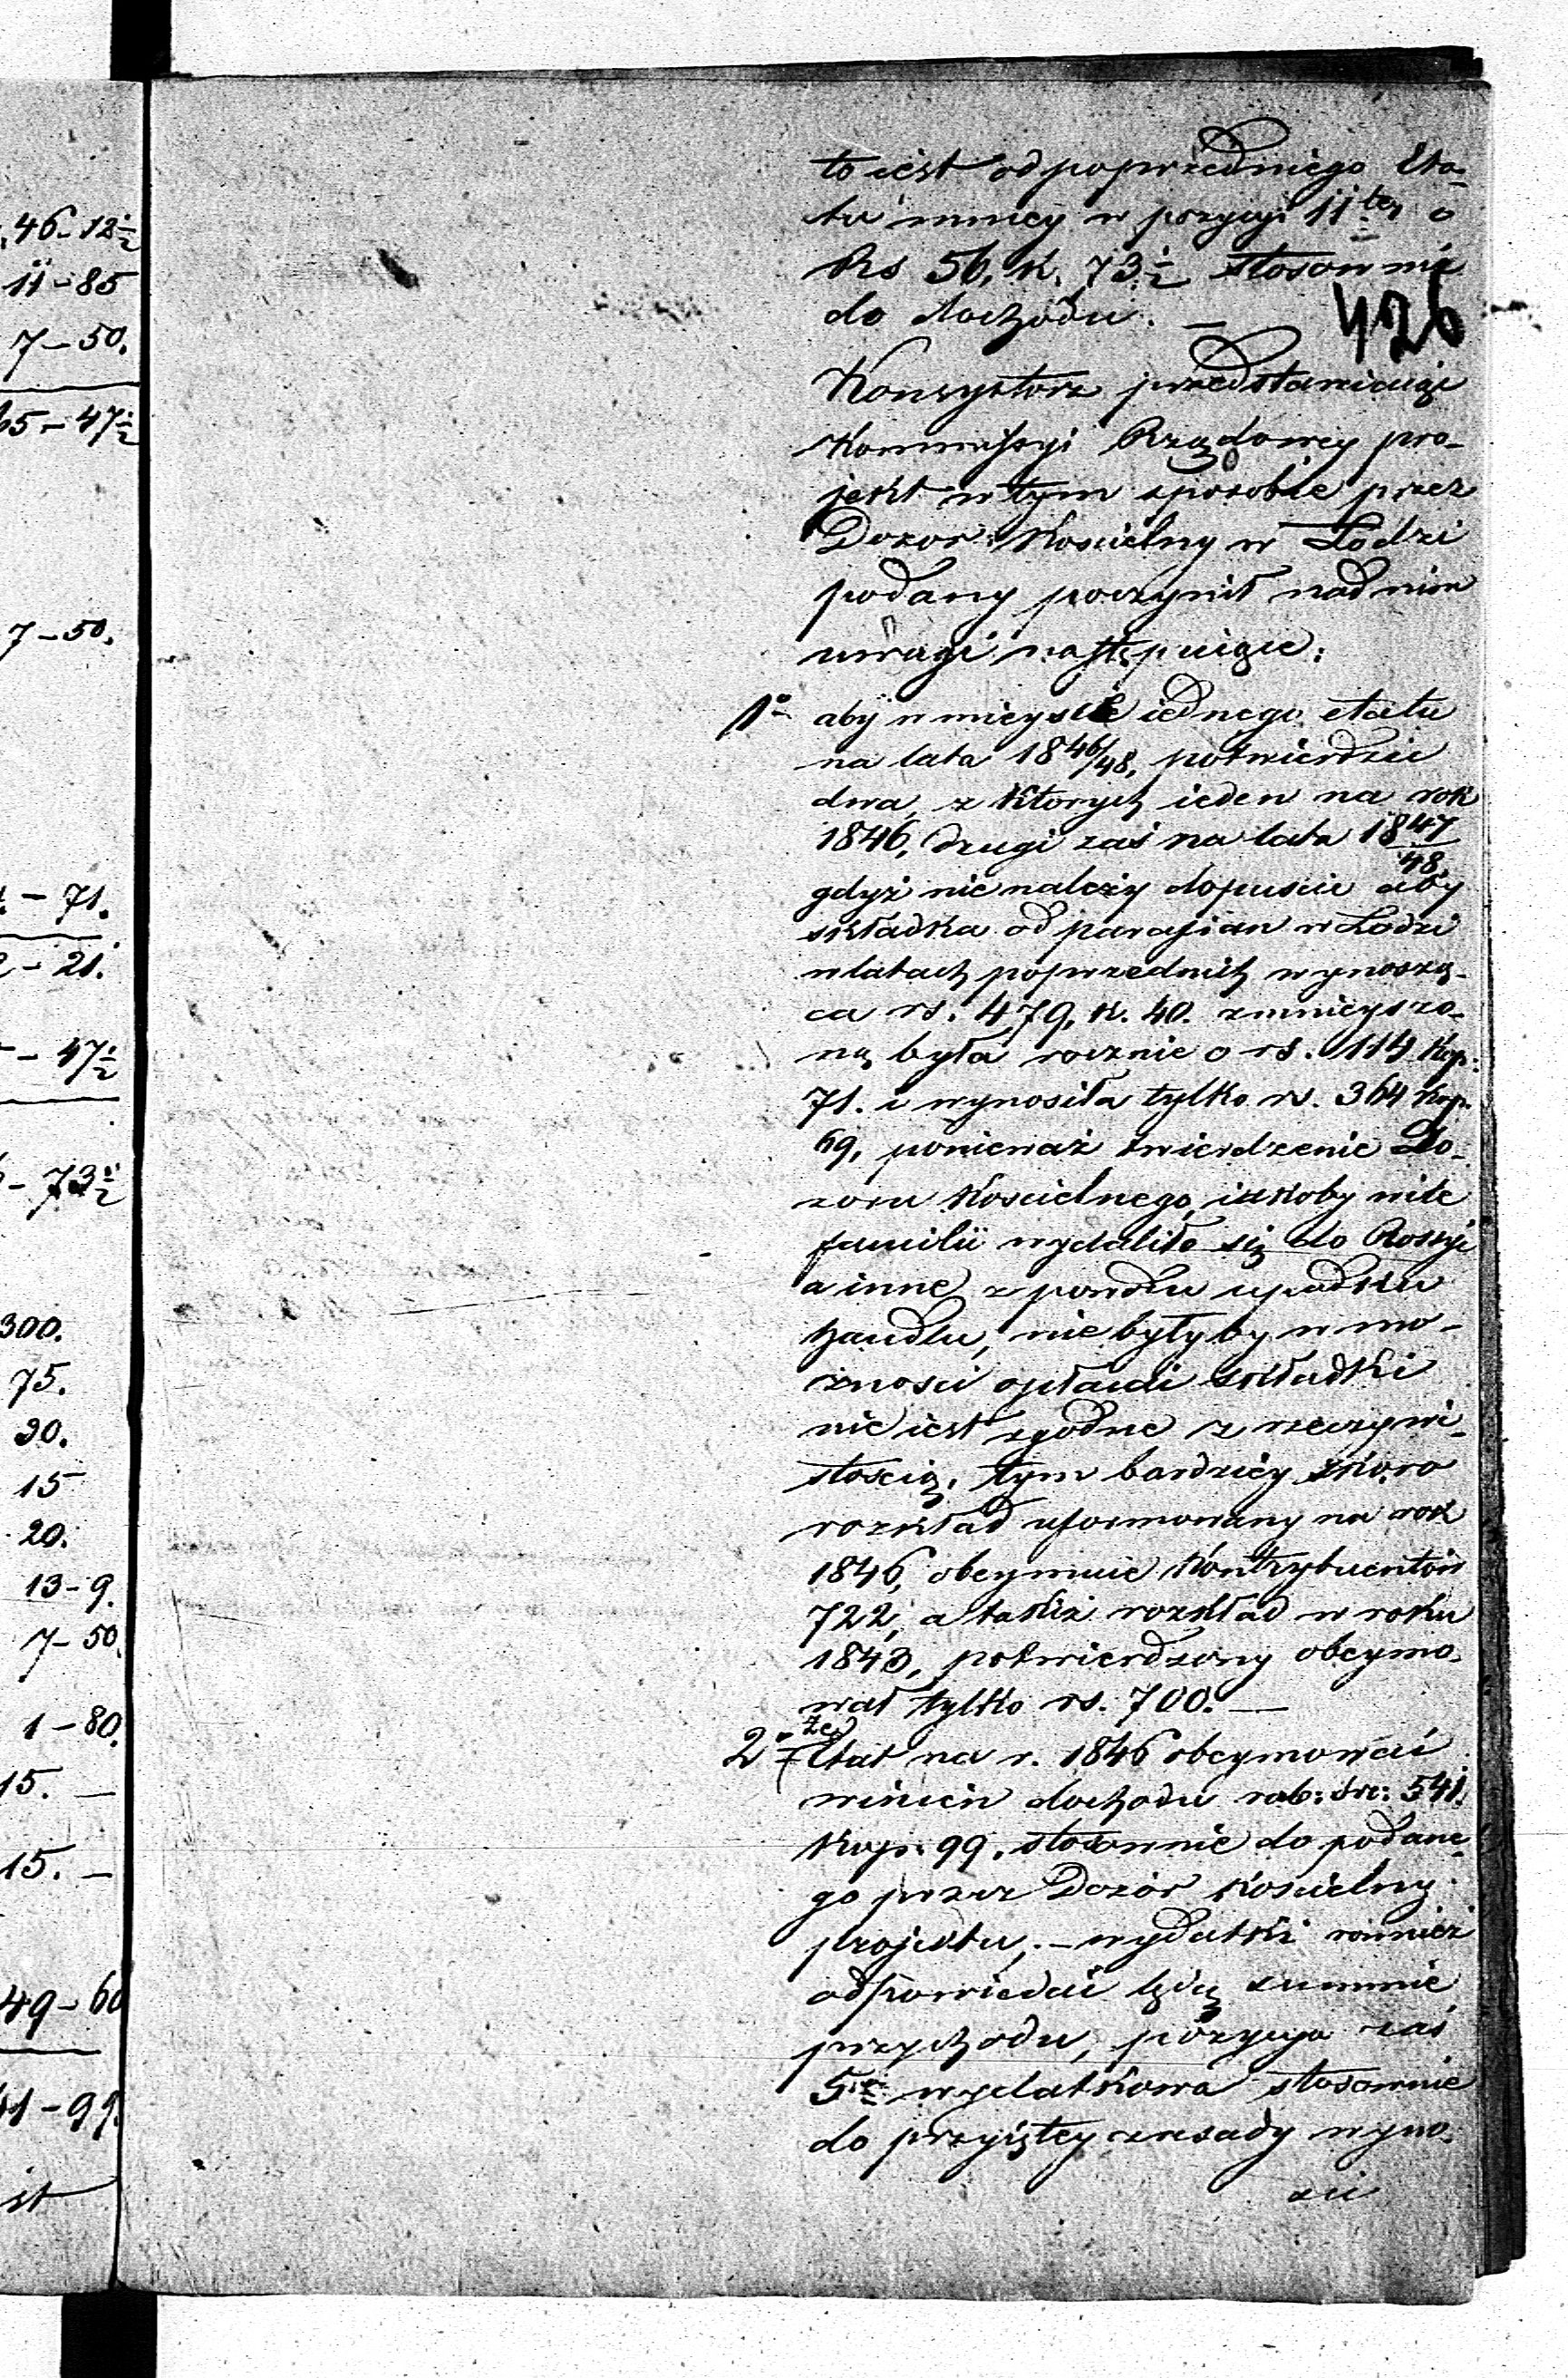 to iest od poprzedniego Eta-
tu mniey w pozycyi 11tey o
Rs 56, k. 73 1/2 stosownie
do dochodu. —
426
Konsystorz przedstawiaiąc
Kommissyi Rządowey pro-
jekt w tym sposobie przez
Dozor Kościelny w Łodzi
podany poczynił nad nim
uwagi następuiące:
1o aby w mieysce iednego etatu
na lata 1846/48, potwierdzić
dwa, z których ieden na rok
1846, drugi zaś na lata 1847/48
gdyż nie należy dopuścić aby
składka od parafian w Łodzi
w latach poprzednich wynoszą-
ca rs. 479, k. 40. zmnieyszo-
ną była rocznie o rs. 114 kop:
71. i wynosiła tylko rs. 364 kop.
69, ponieważ twierdzenie Do-
zoru Kościelnego, iakoby wiele
familii wydaliło się do Rossyi
a inne z powodu upadku
handlu, nie byłyby w mo-
żności opłacać składki
nie iest zgodne z rzeczywi-
stością, tym bardziey skoro
rozkład uformowany na rok
1846, obeymuie Kontrybuentów
722, a takiż rozkład w roku
1843, potwierdzony obeymo-
wał tylko rs. 700. —
2o że Etat na r. 1846 obeymować
winien dochodu rub: sr: 541.
kop: 99, stosownie do podane-
go przez Dozór Kościelny
projektu, — wydatki również
odpowiadać będą summie
przychodu, pozycya zaś
5ta wydatkowa stosownie
do przyiętey zasady wyno-
sić
46-12 1/2
11-85
7-50.
65-47 1/2
7-50.
-71.
2-21.
-47 1/2
-73 1/2
300.
75.
30.
15
20.
13-9.
7-50.
1-80.
15. —
15. —
49-60
41-99.